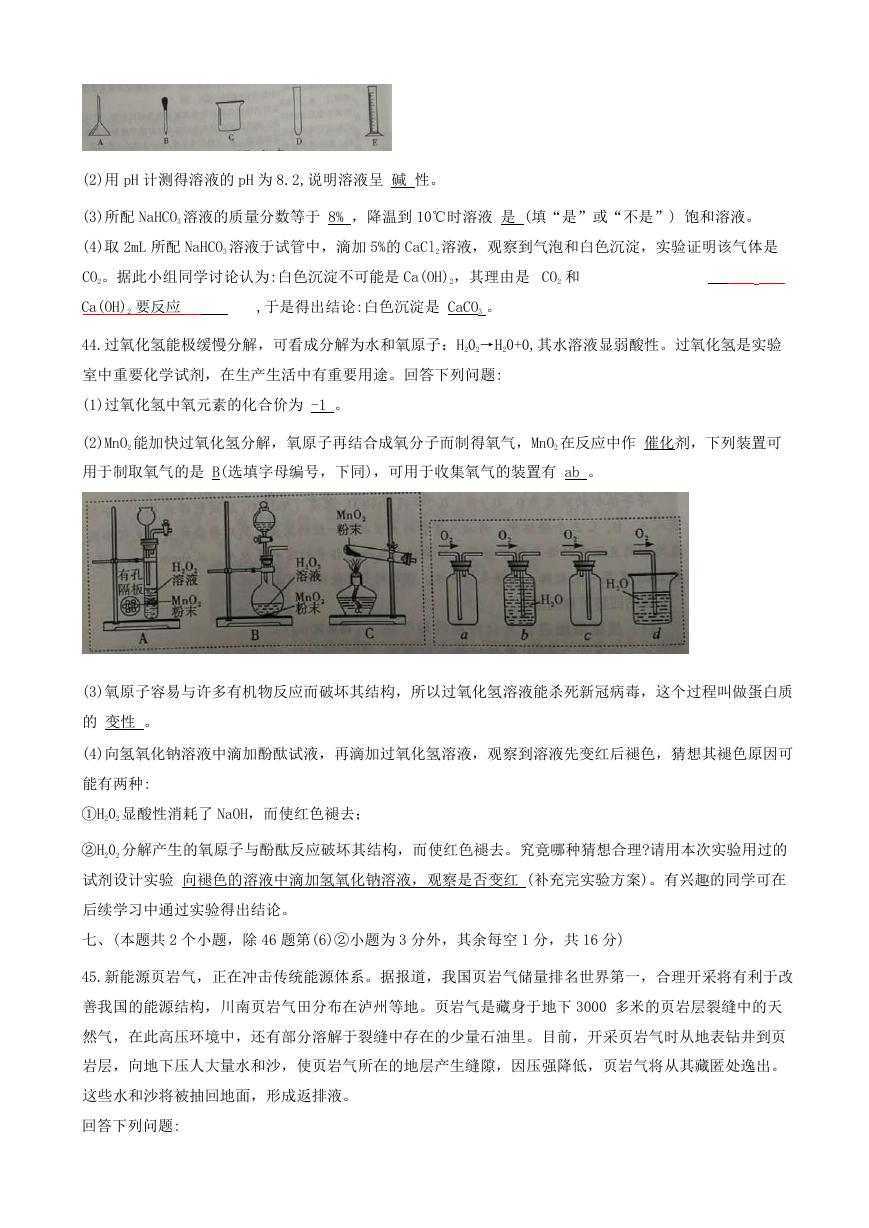 A B C D E
(2)用 pH 计测得溶液的 pH 为 8.2,说明溶液呈 碱 性。
(3)所配 NaHCO₃溶液的质量分数等于 8% ，降温到 10℃时溶液 是 (填“是”或“不是”) 饱和溶液。
(4)取 2mL 所配 NaHCO₃溶液于试管中，滴加 5%的 CaCl₂溶液，观察到气泡和白色沉淀，实验证明该气体是
CO₂。据此小组同学讨论认为:白色沉淀不可能是 Ca(OH)₂，其理由是 CO₂ 和
Ca(OH)₂ 要反应 ,于是得出结论:白色沉淀是 CaCO₃ 。
44.过氧化氢能极缓慢分解，可看成分解为水和氧原子：H₂O₂→H₂O+O,其水溶液显弱酸性。过氧化氢是实验
室中重要化学试剂，在生产生活中有重要用途。回答下列问题:
(1)过氧化氢中氧元素的化合价为 -1 。
(2)MnO₂能加快过氧化氢分解，氧原子再结合成氧分子而制得氧气，MnO₂在反应中作 催化剂，下列装置可
用于制取氧气的是 B(选填字母编号，下同)，可用于收集氧气的装置有 ab 。
有孔
隔板
H₂O₂
溶液
MnO₂
粉末
A
H₂O₂
溶液
MnO₂
粉末
B
MnO₂
粉末
C
O₂ O₂ O₂ O₂
H₂O
H₂O
a b c d
(3)氧原子容易与许多有机物反应而破坏其结构，所以过氧化氢溶液能杀死新冠病毒，这个过程叫做蛋白质
的 变性 。
(4)向氢氧化钠溶液中滴加酚酞试液，再滴加过氧化氢溶液，观察到溶液先变红后褪色，猜想其褪色原因可
能有两种:
①H₂O₂显酸性消耗了 NaOH，而使红色褪去；
②H₂O₂分解产生的氧原子与酚酞反应破坏其结构，而使红色褪去。究竟哪种猜想合理?请用本次实验用过的
试剂设计实验 向褪色的溶液中滴加氢氧化钠溶液，观察是否变红 (补充完实验方案)。有兴趣的同学可在
后续学习中通过实验得出结论。
七、(本题共 2 个小题，除 46 题第(6)②小题为 3 分外，其余每空 1 分，共 16 分)
45.新能源页岩气，正在冲击传统能源体系。据报道，我国页岩气储量排名世界第一，合理开采将有利于改
善我国的能源结构，川南页岩气田分布在泸州等地。页岩气是藏身于地下 3000 多米的页岩层裂缝中的天
然气，在此高压环境中，还有部分溶解于裂缝中存在的少量石油里。目前，开采页岩气时从地表钻井到页
岩层，向地下压人大量水和沙，使页岩气所在的地层产生缝隙，因压强降低，页岩气将从其藏匿处逸出。
这些水和沙将被抽回地面，形成返排液。
回答下列问题: